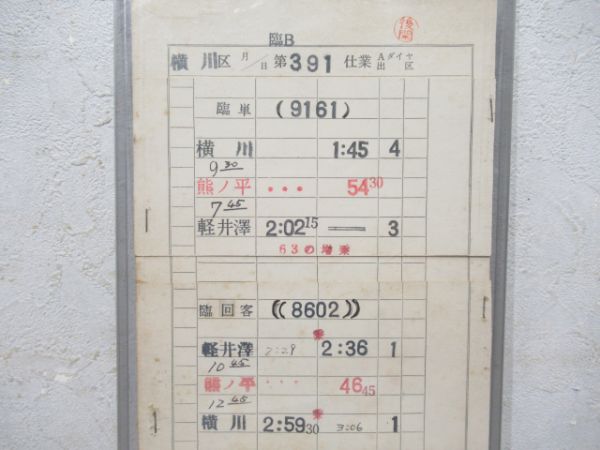 臨B
後閑
横川区 月/日 第391 仕業 Aダイヤ 出区
臨単 (9161)
横川 1:45 4
9 30
熊ノ平 ・・・ 54 30
7 45
軽井澤 2:02 15 — 3
63の増乗
臨回客 ((8602))
乗
軽井澤 2:29 2:36 1
10 45
熊ノ平 ・・・ 46 45
12 45
乗
横川 2:59 30 3:06 1